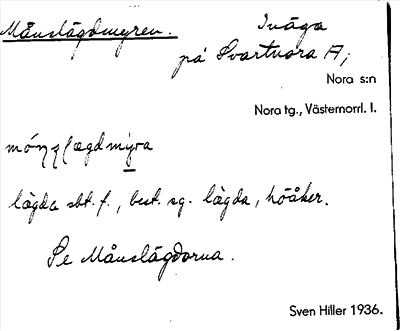 Månslägdmyren. Inäga
på Svartnora A;
Nora s:n
Nora tg., Västernorrl. l.
lägda sbt. f., best. sg. lägda, höåker.
Se Månslägdorna.
Sven Hiller 1936.